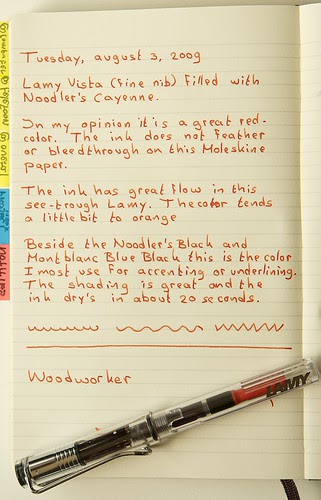 Tuesday, august 3, 2009
Lamy Vista (Fine nib) Filled with
Noodler's Cayenne.
In my opinion it is a great red-
color. The ink does not feather
or bleedthrough on this Moleskine
paper.
The ink has great flow in this
see-trough Lamy. The color tends
a little bit to orange
Beside the Noodler's Black and
Montblanc Blue Black this is the color
I most use for accenting or underlining.
The shading is great and the
ink dry's in about 20 seconds.
Woodworker
LAMY